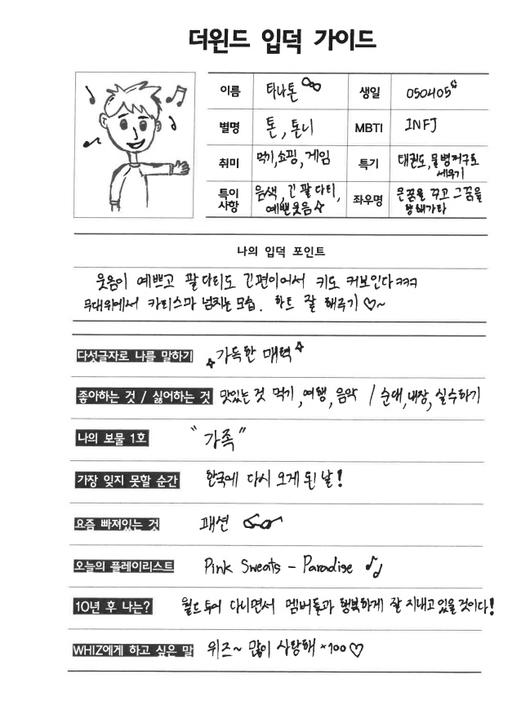 더윈드 입덕 가이드
이름 타나톤 생일 050405
별명 톤, 톤니 MBTI INFJ
취미 먹기, 쇼핑, 게임 특기 태권도, 물병 거꾸로 세우기
특이사항 음색, 긴 팔다리, 예쁜 웃음 좌우명 큰 꿈을 꾸고 그 꿈을 향해가라
나의 입덕 포인트
웃음이 예쁘고 팔다리도 긴 편이어서 키도 커보인다 ㅋㅋㅋ
무대위에서 카리스마 넘치는 모습. 하트 잘 해주기 ♡~
다섯글자로 나를 말하기 가득한 매력
좋아하는 것 / 싫어하는 것 맛있는 것 먹기, 여행, 음악 / 순대, 내장, 실수하기
나의 보물 1호 "가족"
가장 잊지 못할 순간 한국에 다시 오게 된 날!
요즘 빠져있는 것 패션
오늘의 플레이리스트 Pink Sweats - Paradise
10년 후 나는? 월드투어 다니면서 멤버들과 행복하게 잘 지내고 있을 것이다!
WHIZ에게 하고 싶은 말 위즈~ 많이 사랑해 ×100♡